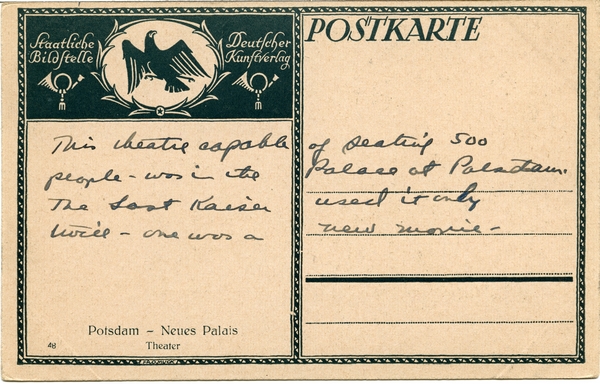 Staatliche Bildstelle
Deutscher Kunstverlag
POSTKARTE
This theatre capable of seating 500
people - was in the Palace at Potsdam.
The Last Kaiser used it only
twice - one was a new movie -
Potsdam – Neues Palais
Theater
48